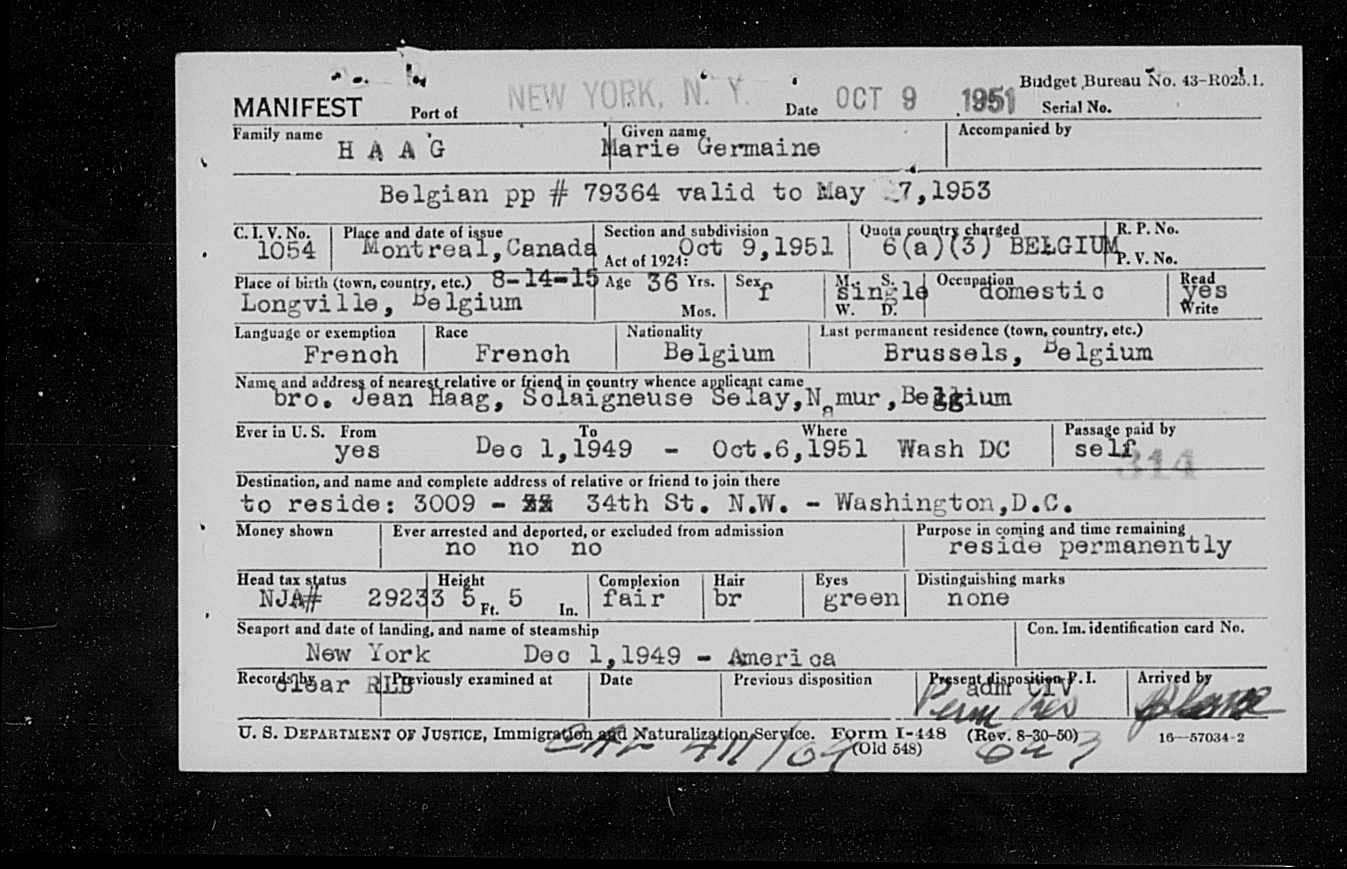 Budget Bureau No. 43-R025.1.
MANIFEST Port of NEW YORK, N. Y. Date OCT 9 1951 Serial No.
Family name Given name Accompanied by
H A A G Marie Germaine
Belgian pp # 79364 valid to May 7,1953
C. I. V. No. Place and date of issue Section and subdivision Quota country charged R. P. No.
1054 Montreal,Canada Act of 1924: Oct 9,1951 6(a)(3) BELGIUM P. V. No.
Place of birth (town, country, etc.) 8-14-15 Age 36 Yrs. Sex M. S. Occupation Read
Longville, Belgium Mos. f single W. D. domestic yes Write
Language or exemption Race Nationality Last permanent residence (town, country, etc.)
French French Belgium Brussels, Belgium
Name and address of nearest relative or friend in country whence applicant came
bro. Jean Haag, Solaigneuse Selay,Namur,Belgium
Ever in U. S. From To Where Passage paid by
yes Dec 1,1949 - Oct.6,1951 Wash DC self
314
Destination, and name and complete address of relative or friend to join there
to reside: 3009 - 34th St. N.W. - Washington,D.C.
Money shown Ever arrested and deported, or excluded from admission Purpose in coming and time remaining
no no no reside permanently
Head tax status Height Complexion Hair Eyes Distinguishing marks
NJA# 29233 5 Ft. 5 In. fair br green none
Seaport and date of landing, and name of steamship Con. Im. identification card No.
New York Dec 1,1949 - America
Records by Previously examined at Date Previous disposition Present disposition P. I. Arrived by
clear RLB adm CIV
Perm Res plane
U. S. DEPARTMENT OF JUSTICE, Immigration and Naturalization Service. Form I-448 (Rev. 8-30-50) 16—57034-2
(Old 548)